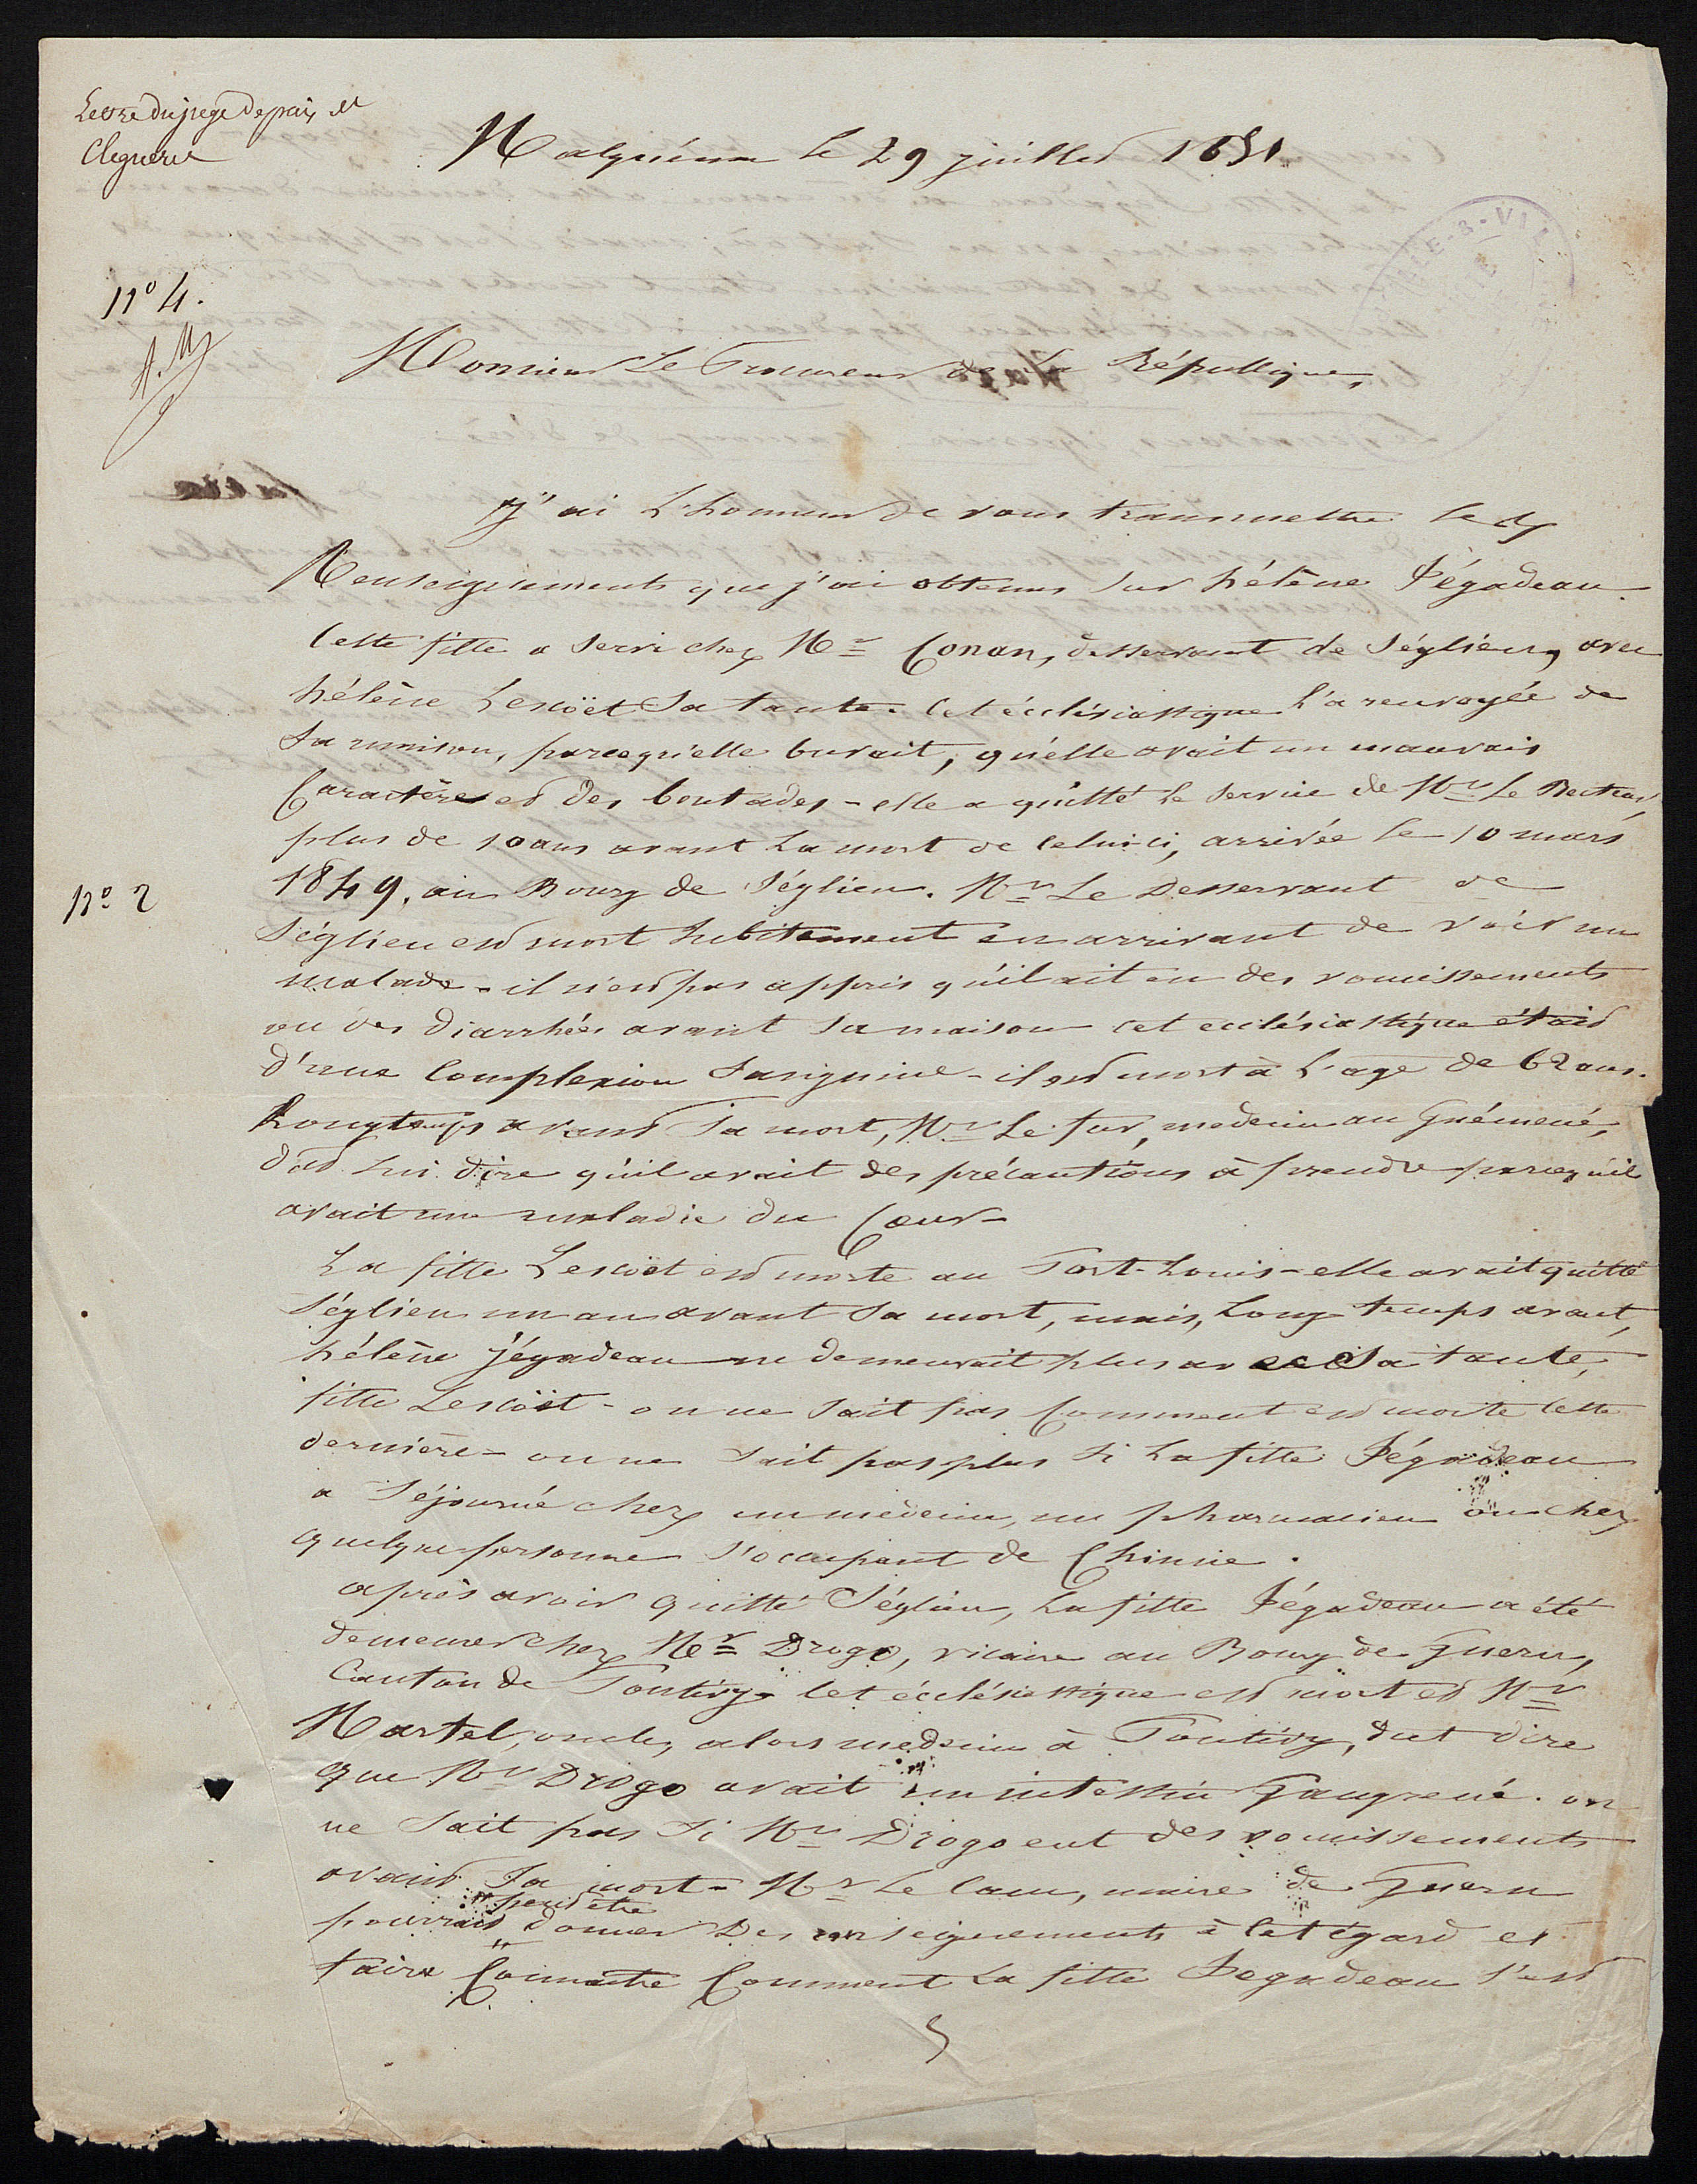 Lettre du juge de paix de
Cleguerec
Malguénac le 29 juillet 1851
n° 4.
Monsieur Le Procureur de La République,
J'ai L'honneur de vous transmettre les
Renseignements que j'ai obtenus sur hélène Jégadeau.
Cette fille a servi chez Mr Conan, desservant de Séglien, avec
hélène Lescöet Sa tante. Cet écclésiastique l'a renvoyée de
Sa maison, parcequ'elle buvait, qu'elle avait un mauvais
Caractère et des boutades - elle a quitté le service de Mr Le Recteur,
plus de 10 ans avant La mort de Celui-ci, arrivée le 10 mars
1849, au Bourg de Séglien. Mr Le Desservant de
n° 2
Séglien est mort Subitement en arrivant de voir un
malade - il n'est pas appris qu'il ait eu des vomissements
ou des diarrhées avant Sa maison cet ecclésiastique était
d'une Complexion Sanguine - il est mort à L'age de 62 ans.
Longtemps avant Sa mort, Mr Le fur, medecin au Guémené,
dut lui dire qu'il avait des précautions à prendre parcequ'il
avait une maladie du Cœur -
La fille Lescöet est morte au Port-Louis - elle avait quitté
Séglien un an avant Sa mort, mais, Long temps avant,
hélène Jégadeau ne demeurait plus avec Sa tante,
fille Lescöet - on ne Sait pas Comment est morte cette
dernière - on ne Sait pas plus Si La fille Jégadeau
a Séjourné chez un médecin, un pharmacien ou chez
quelque personne S'occupant de Chimie.
après avoir quitté Séglien, La fille Jégadeau a été
demeurer chez Mr Drogo, vicaire au Bourg de Guern,
Canton de Pontivy - Cet écclésiastique est mort et Mr
Martel, oncle, alors medecin à Pontivy, dut dire
que Mr Drogo avait un intestin Gangrené. on
ne Sait pas Si Mr Drogo eut des vomissements
avant Sa mort - Mr Le Cam, maire de Guern
peut être
pourrait donner Des renseignements à Cet égard et
faire Connaitre Comment La fille Jegadeau S'est